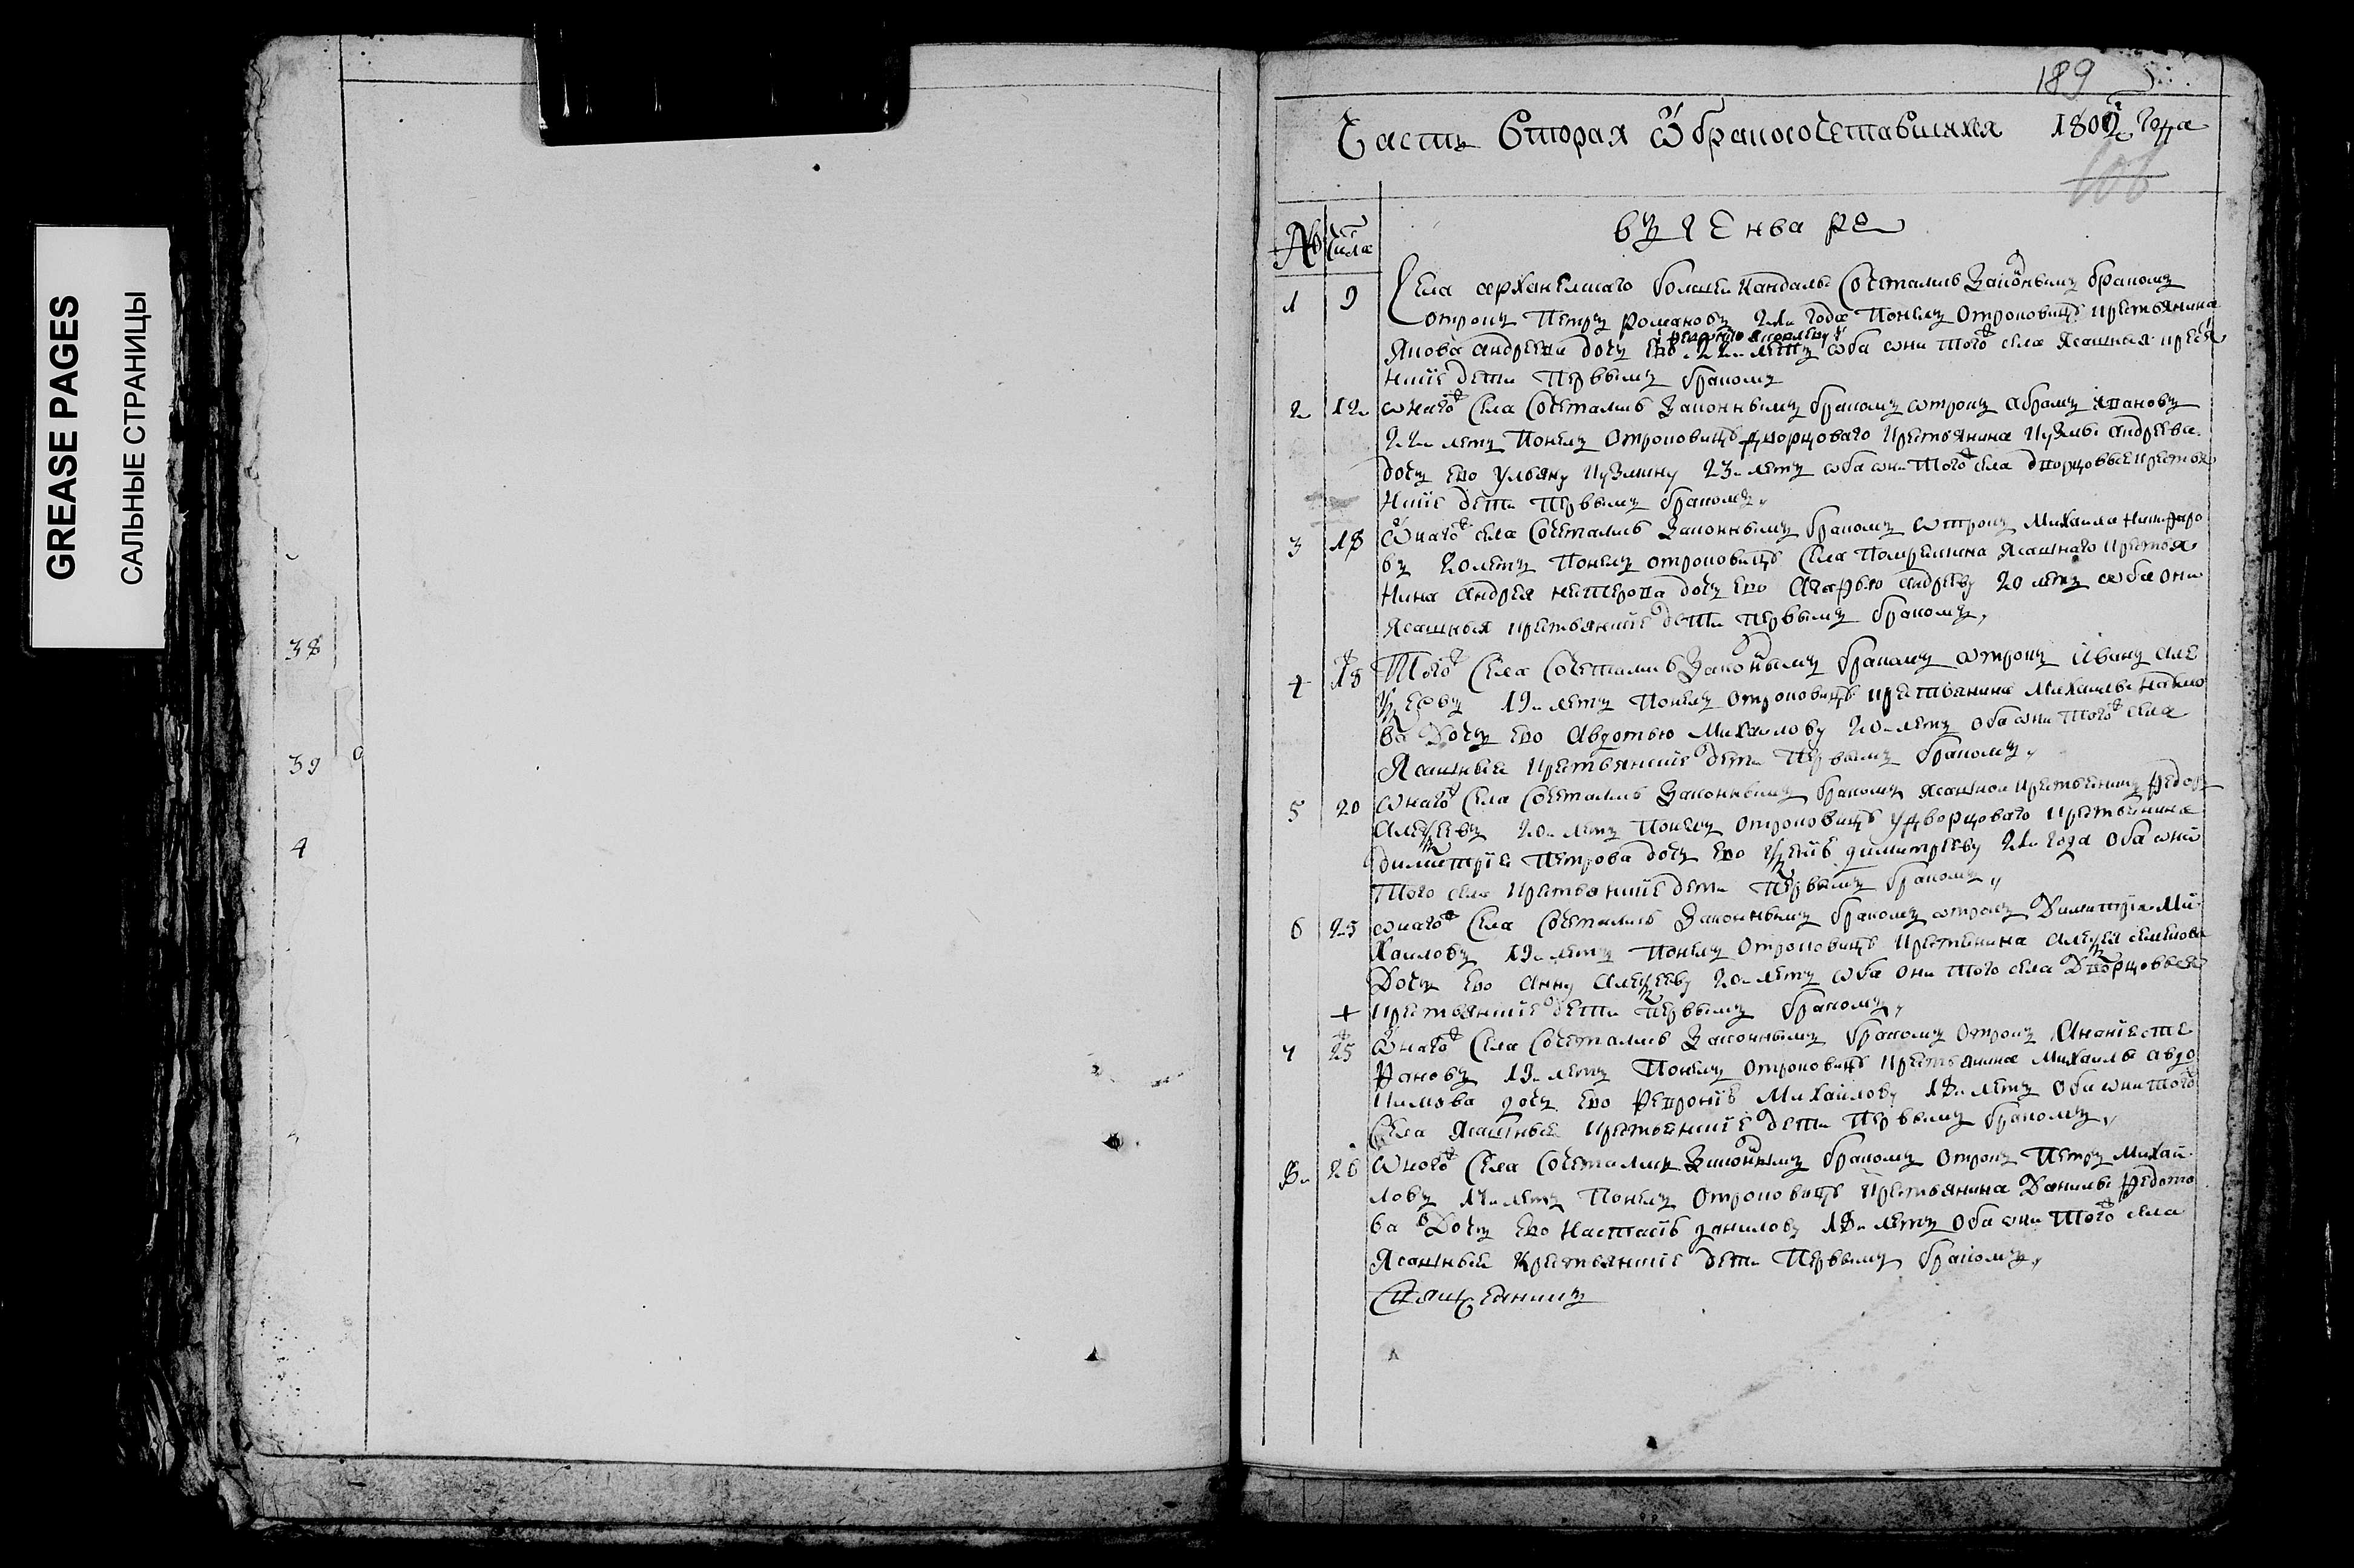 GREASE PAGES
САЛЬНЫЕ СТРАНИЦЫ
38
39
4
189
Часть вторая ѡ бракосочетавшихся 1802 года
въ генваре
№ числа
1 9 Села архангелскаго болшей кандалы сочетались законнымъ бракомъ
отрокъ Петръ Романовъ 21 года понелъ отроковицу крестьянина
Якова андреева дочь ево 22 летъ оба они того села ясашныя кресья
нские дети первымъ бракомъ
2 12 онаго села сочетались законнымъ бракомъ отрокъ абрамъ
22 летъ понелъ отроковицу дворцоваго крестьянина кузмы андреева
дочь ево ульяну кузмину 23 летъ оба они того села дворцовые крестья
нские дети первымъ бракомъ
3 18 Онаго села сочетались законнымъ бракомъ отрокъ Михаила никифоро
въ 20 летъ понелъ отроковицу села ясашнаго крестья
нина андрея дочь ево агафью андрееву 20 летъ оба они
ясашныя крестьянские дети первымъ бракомъ
4 18 Того села сочетались законнымъ бракомъ отрокъ иванъ але
ѯеевъ 19 летъ понелъ отроковицу крестьянина михаилы
ва дочь ево авдотью михаилову 20 летъ оба они того села
ясашныи крестьянские дети первымъ бракомъ
5 20 онаго села сочетались законнымъ бракомъ ясашной крестьенинъ федоръ
алеѯеевъ 20 летъ понелъ отроковицу у дворцоваго крестьенина
димитрие петрова дочь ево димитриеву 21 года оба они
того села крестьянские дети первымъ бракомъ
6 25 онаго села сочетались законнымъ бракомъ отрокъ Димитрия ми
хаиловъ 19 летъ понелъ отроковицу крестенина алеѯея семенова
дочь ево анну алеѯееву 20 летъ оба они того села дворцовыя
+ крестьянские дети первымъ бракомъ
7 25 Онаго села сочетались законнымъ бракомъ отрокъ анание сте
фановъ 19 летъ понелъ отроковицу крестьянина михаилы авдо
кимова дочь ево михаилову 18 летъ оба они того
села ясашные крестьенские дети первымъ бракомъ
8 26 Оного села сочетались законнымъ бракомъ отрокъ петръ михаи
ловъ 17 летъ понелъ отроковицу крестьянина данилы федото
ва дочь ево настасью данилову 18 летъ оба они того села
ясашныи крестьянские дети первымъ бракомъ
Священникъ